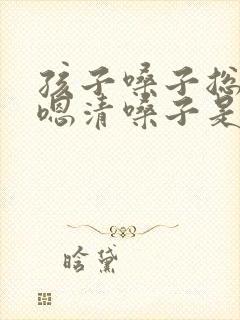 孩子嗓子总
嗯清嗓子是
晗黛